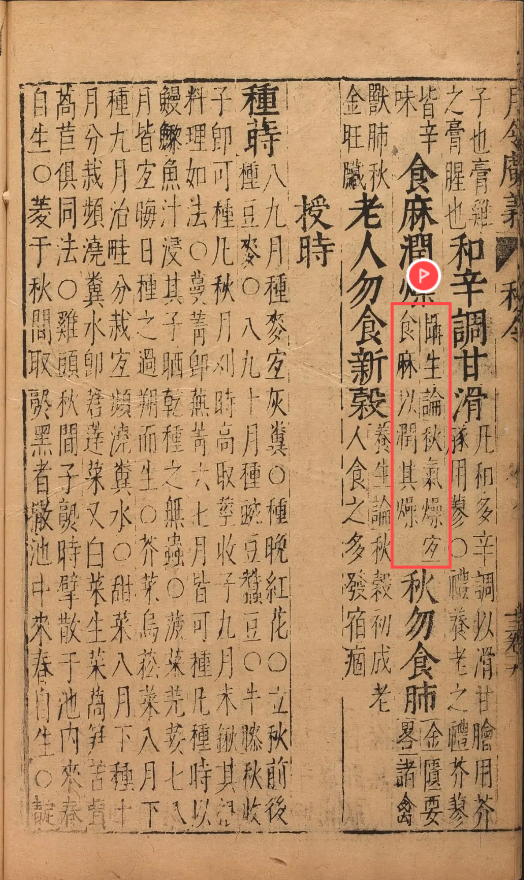 月令廣義 秋令
子也膏雞
之膏腥也
和辛調甘滑
凡和多辛調以滑甘膾用芥
豚用蓼○禮養老之禮芥蓼
皆辛
味
食麻潤燥
攝生論秋氣燥宜
食麻以潤其燥
秋勿食肺
金匱要
畧諸禽
獸肺秋
金旺臟
老人勿食新穀
養生論秋穀初成老
人食之多發宿痼
授時
種蒔
八九月種麥宜灰糞○種晚紅花○立秋前後
種豆麥○八九十月種豌豆蠶豆○牛膝秋收
子卽可種凡秋月刈時高取莖收子九月末鍬其根
料理如法○蔓菁卽蕪菁六七月皆可種凡種時以
鰻鱺魚汁浸其子晒乾種之無蟲○菠菜芫荽七八
月皆宜晦日種之過朔而生○芥菜烏菘菜八月下
種九月治畦分栽宜頻澆糞水○甜菜八月下種十
月分栽頻澆糞水卽莙蓬菜又白菜生菜萵笋苦蕒
萵苣俱同法○雞頭秋間子熟時擘散子池內來春
自生○菱于秋間取熟黑者散池中來春自生○靛